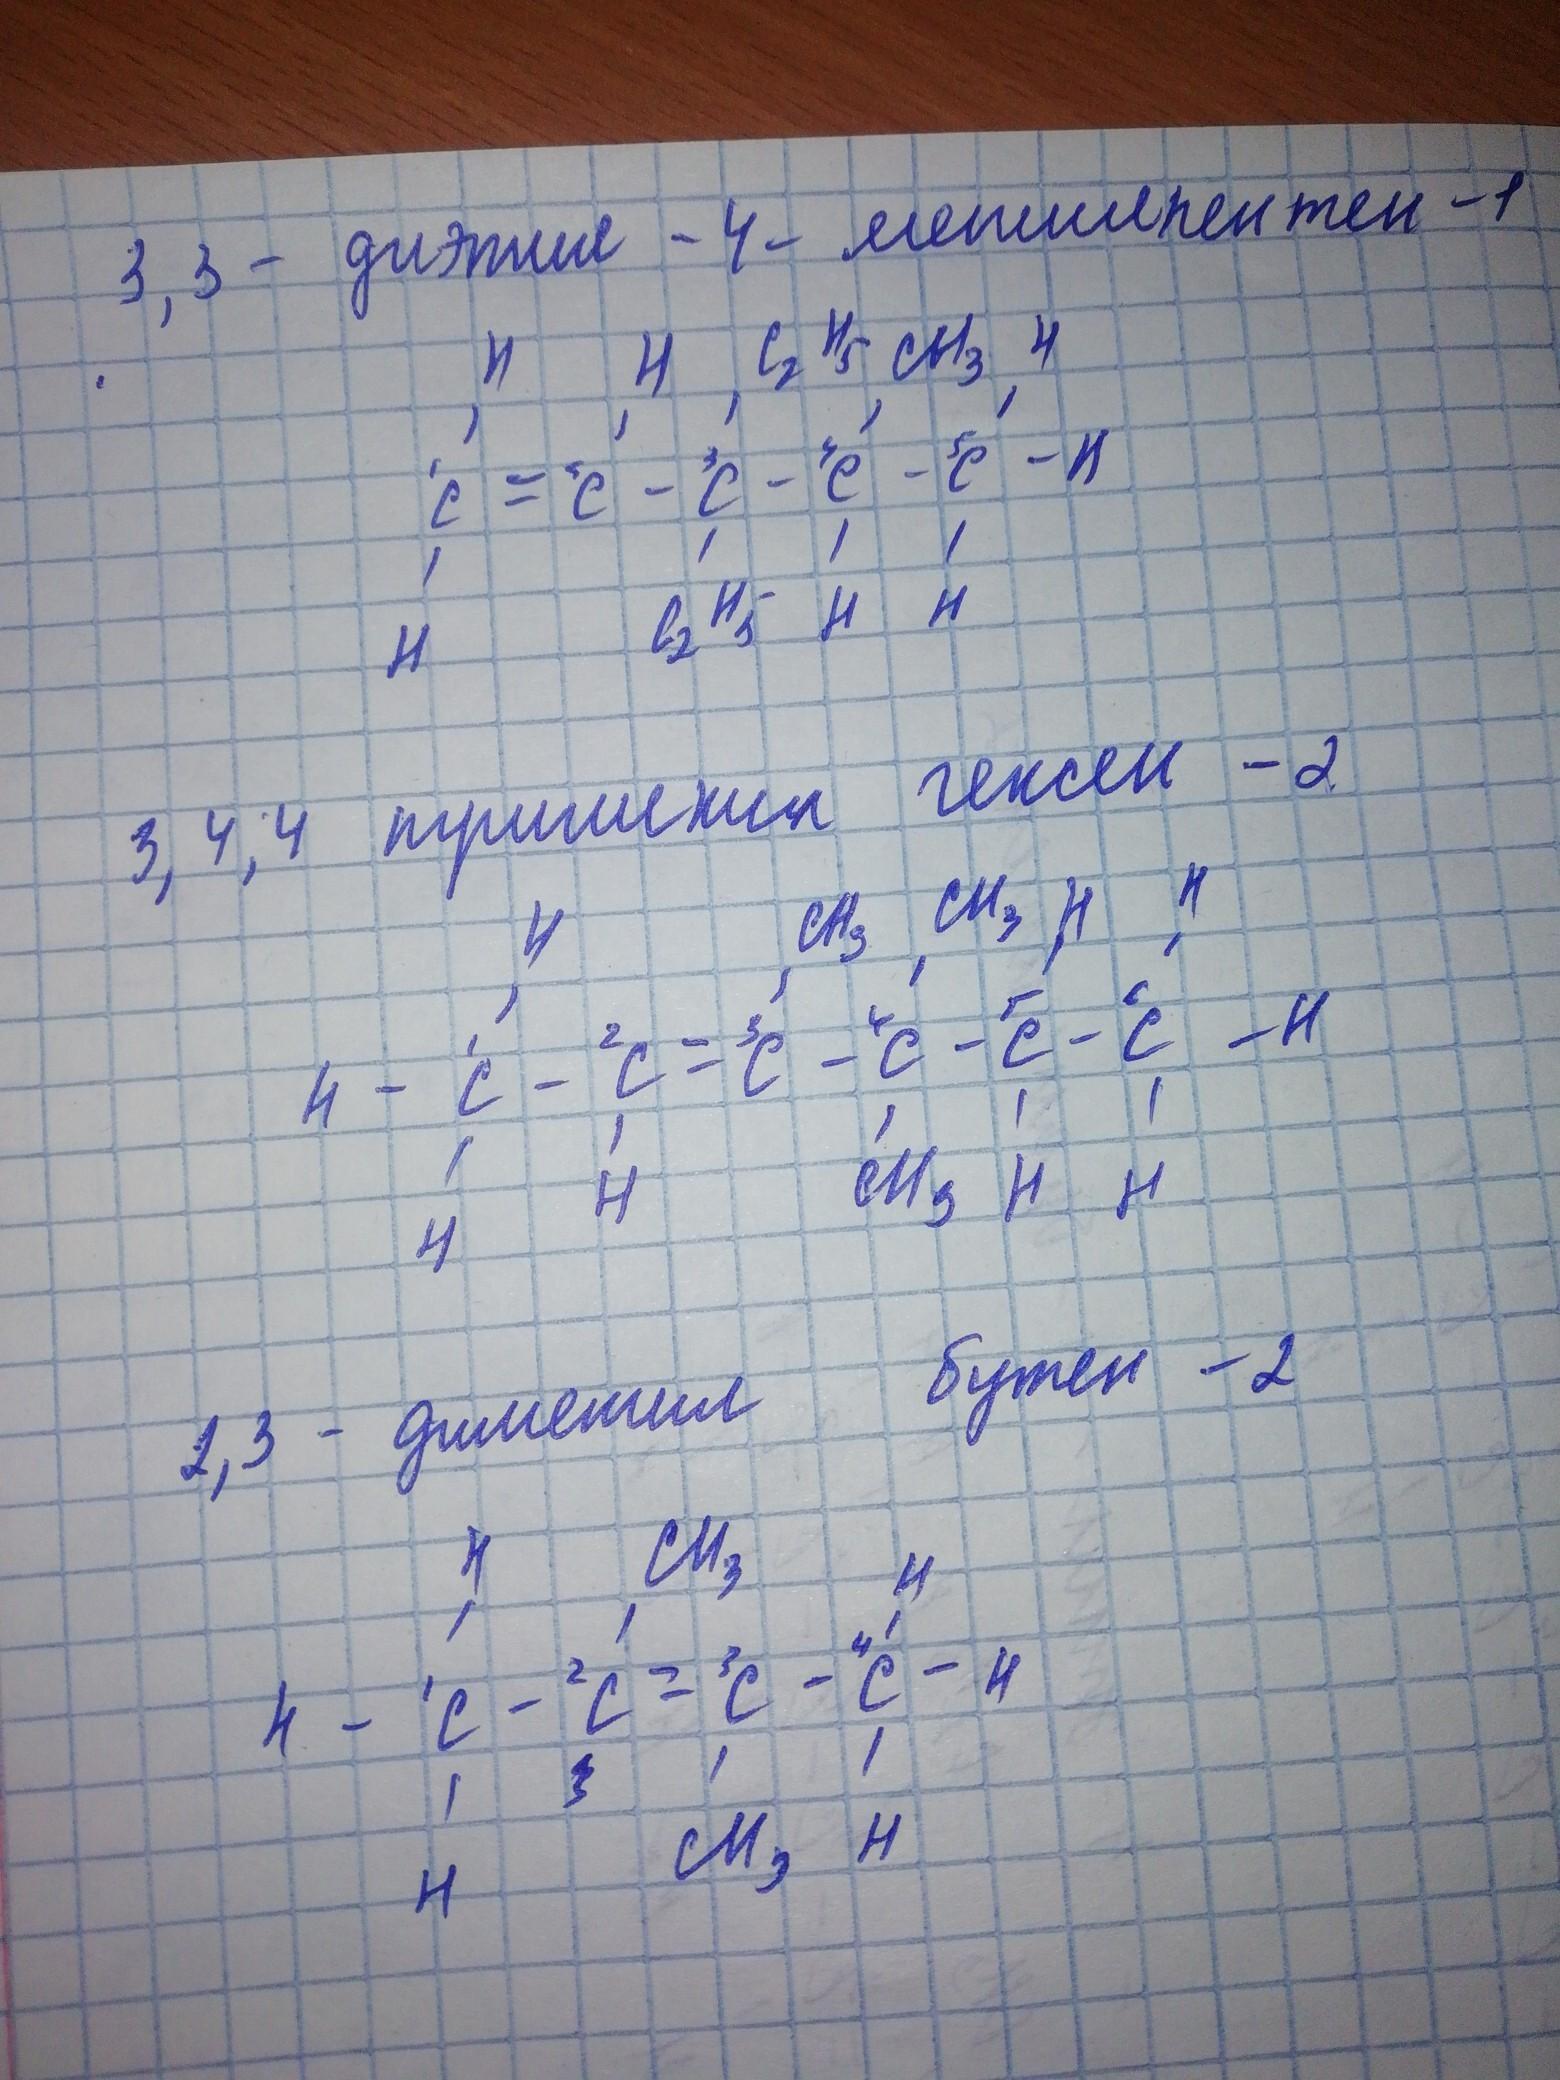 3,3 - диэтил - 4 - метилпентен - 1
H H C2H5 CH3 H
1C = 2C - 3C - 4C - 5C - H
H C2H5 H H
3,4,4 триметил гексен - 2
H CH3 CH3 H H
H - 1C - 2C = 3C - 4C - 5C - 6C - H
H H CH3 H H
2,3 - диметил бутен - 2
H CH3 H
H - 1C - 2C = 3C - 4C - H
3
H CH3 H